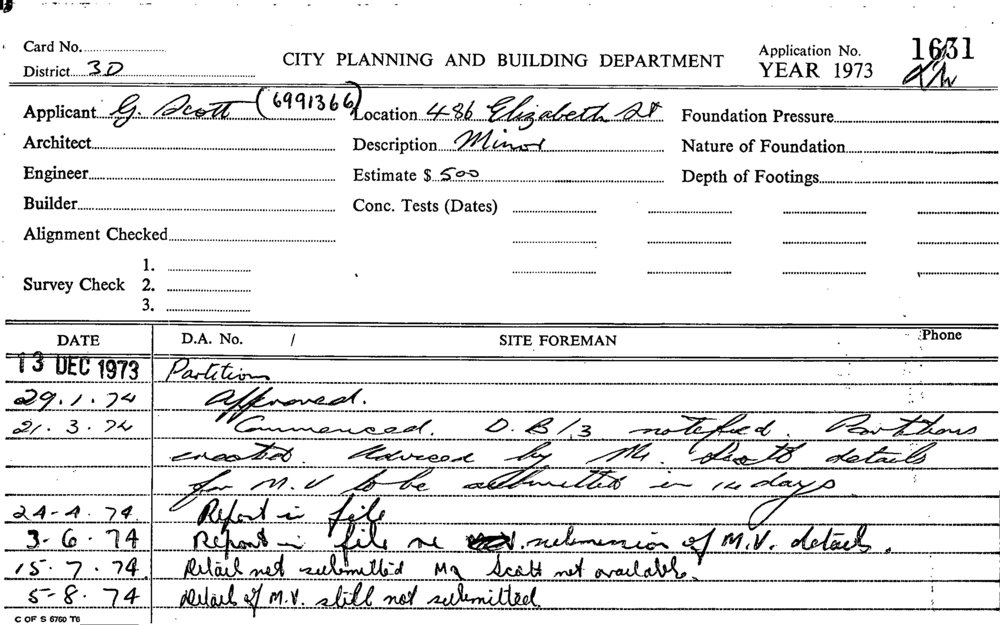 Card No.
District 3D
CITY PLANNING AND BUILDING DEPARTMENT
Application No. 1631
YEAR 1973
Applicant G. Scott (6991366)
Location 486 Elizabeth St
Foundation Pressure
Architect
Description Minor
Nature of Foundation
Engineer
Estimate $ 500
Depth of Footings
Builder
Conc. Tests (Dates)
Alignment Checked
Survey Check
1.
2.
3.
DATE D.A. No. / SITE FOREMAN Phone
13 DEC 1973 Partitions
29.1.74 Approved.
21.3.74 Commenced. D.B/3 notified. Partitions
erected. Advised by Mr. Scott details
for M.V to be submitted in 14 days
24-4.74. Report in file
3-6.74 Report in file re submission of M.V. details.
15.7.74. Detail not submitted Mr Scott not available.
5-8.74 Details of M.V. still not submitted
C OF S 6760 T6